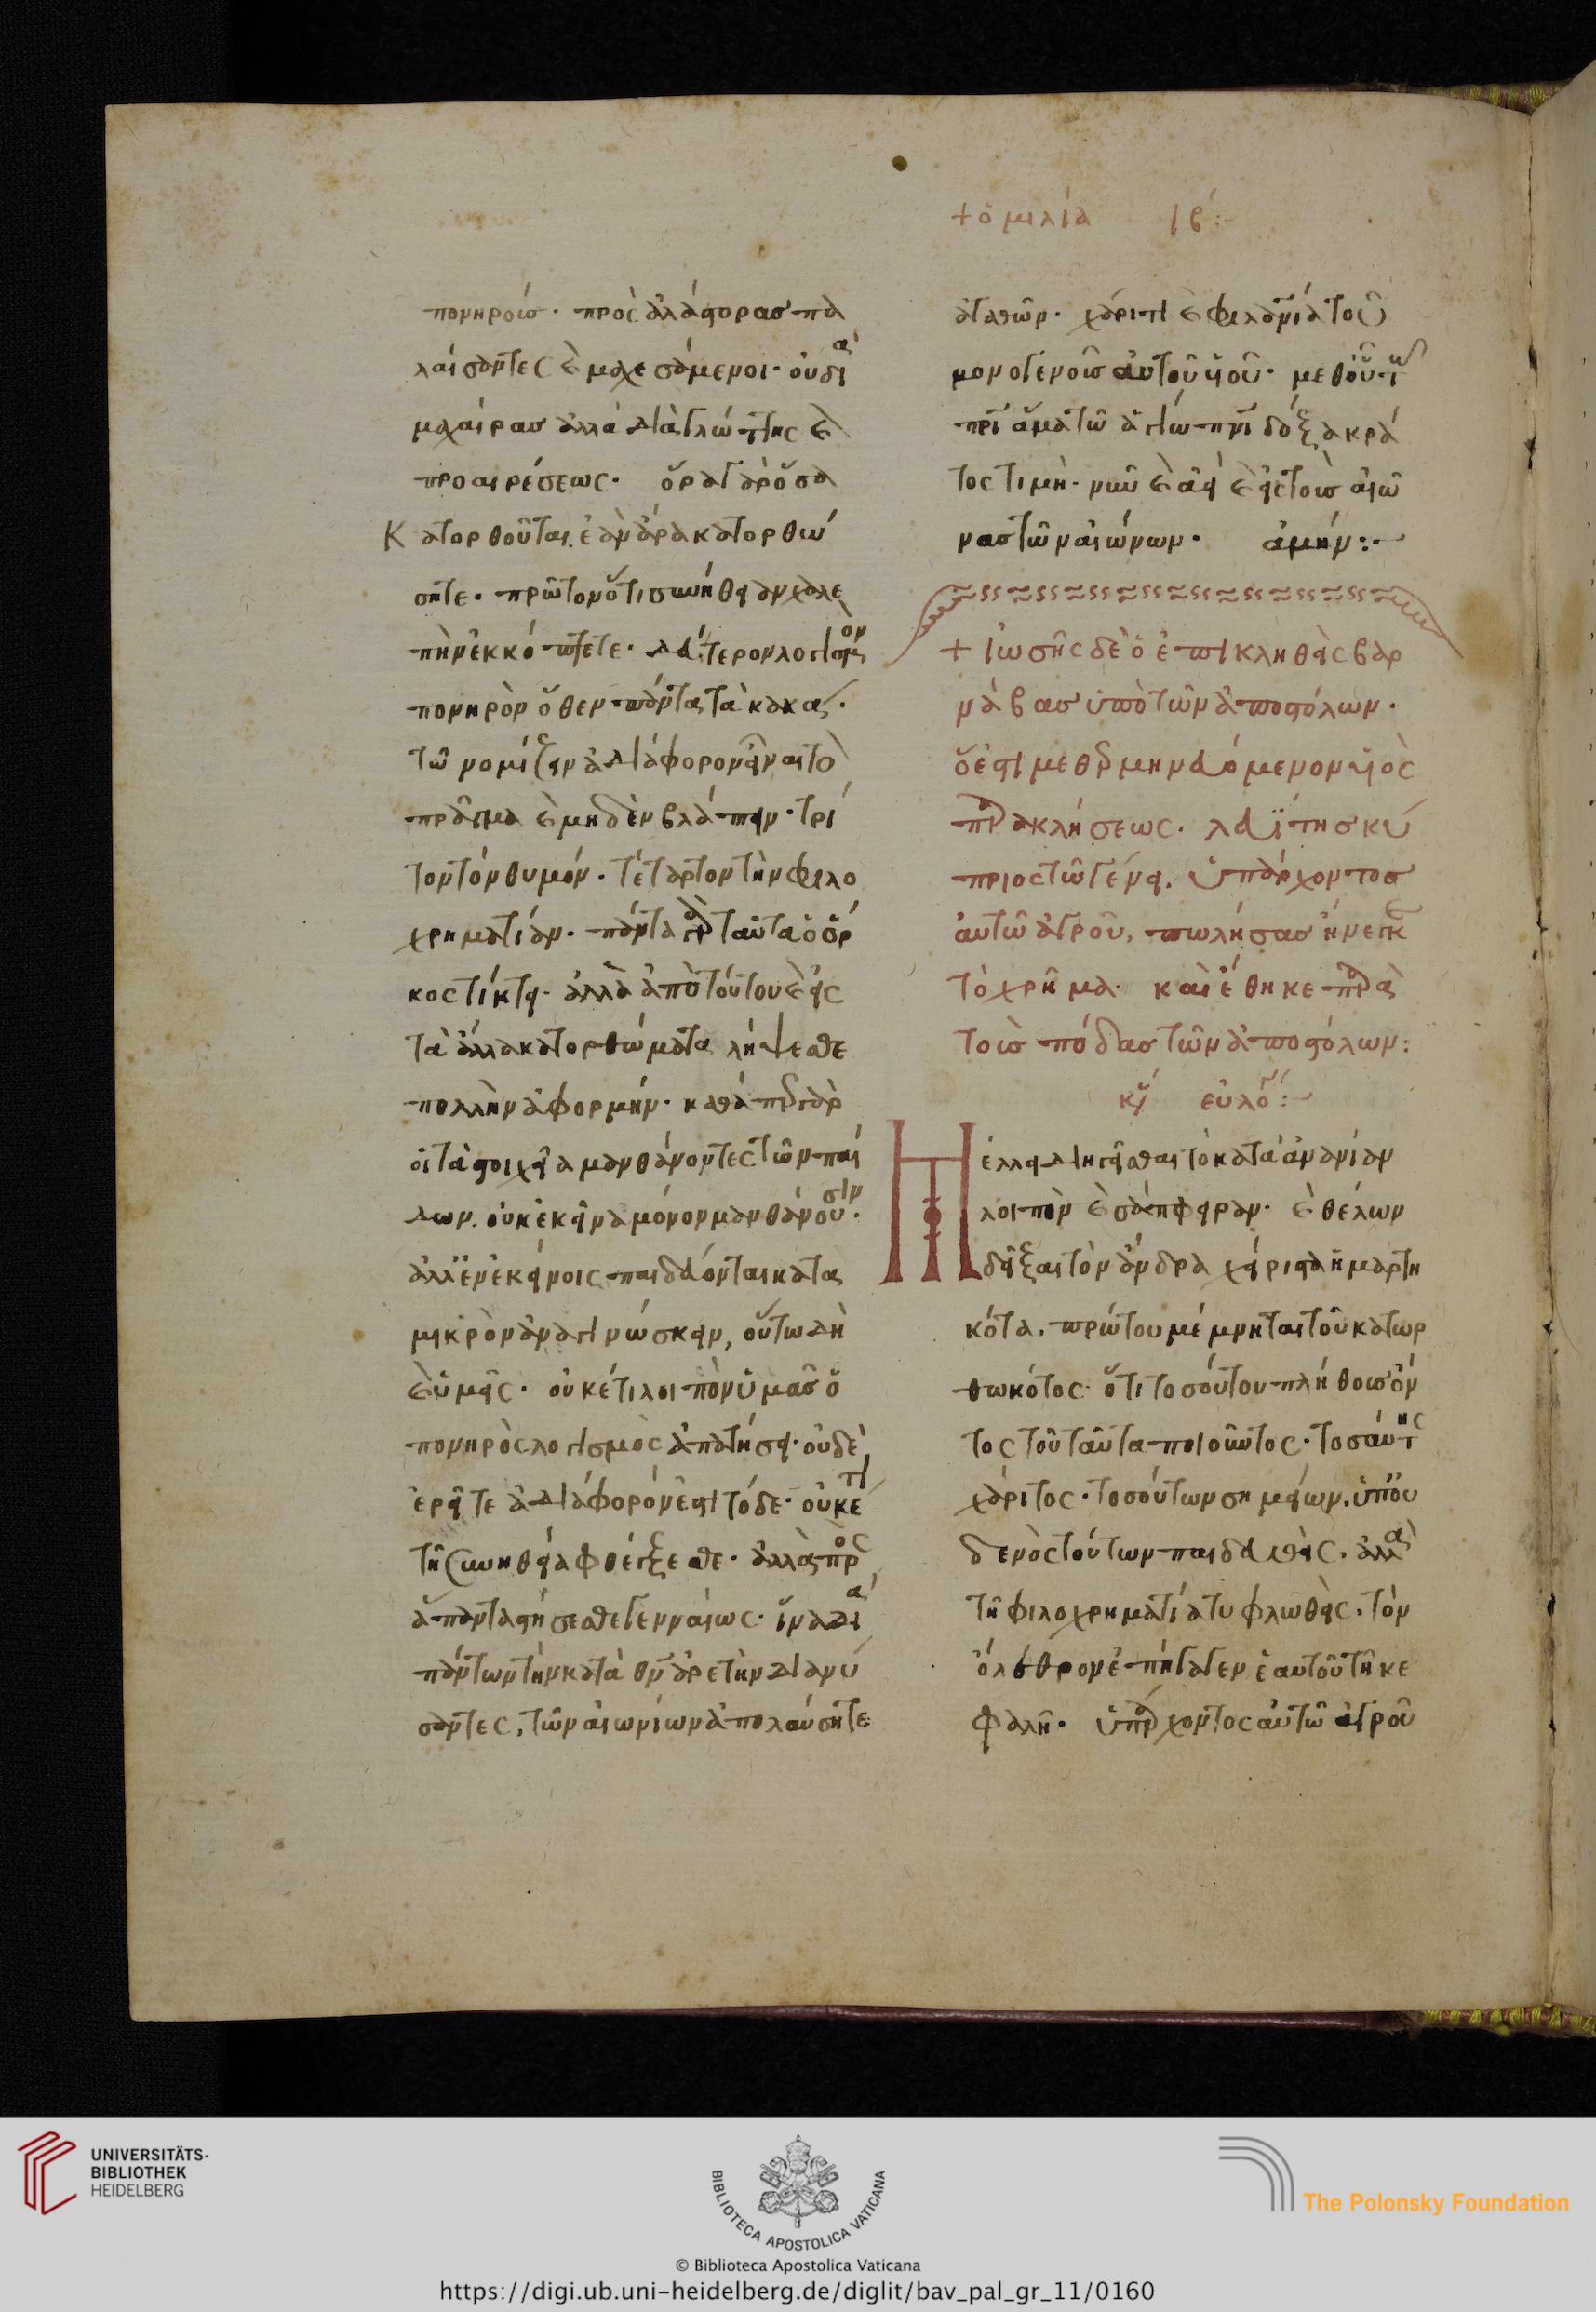 + ὁμιλία ιβ:
πονηροῖς. πρὸς ἀλάστορας πα
λαίσαντες καὶ μαχεσάμενοι. οὐ διὰ
μαχαίρας ἀλλὰ διὰ γλώττης καὶ
προαιρέσεως. ὅρα γὰρ ὅσα
κατορθοῦται, ἐὰν ἄρα κατορθώ
σητε. πρῶτον ὅτι συνήθειαν χαλε
πὴν ἐκκόπτετε. δεύτερον λογισμὸν
πονηρὸν ὅθεν πάντα τὰ κακά.
τῶ νομίζειν ἀδιάφορον εἶναι τὸ
πρᾶγμα καὶ μηδὲν βλάπτειν. τρί
τον τὸν θυμόν. τέταρτον τὴν φιλο
χρηματίαν. πάντα γὰρ ταῦτα ὁ ὅρ
κος τίκτει. ἀλλὰ ἀπὸ τούτου καὶ εἰς
τὰ ἄλλα κατορθώματα λήψεσθε
πολλὴν ἀφορμήν. καθάπερ γὰρ
οἱ τὰ στοιχεῖα μανθάνοντες τῶν παί
δων. οὐκ ἐκεῖνα μόνον μανθάνουσιν.
ἀλλ' ἐν ἐκείνοις παιδεύονται κατὰ
μικρὸν ἀναγινώσκειν, οὕτω δὴ
καὶ ὑμεῖς. οὐκέτι λοιπὸν ὑμᾶς ὁ
πονηρὸς λογισμὸς ἀπατήσει. οὐδὲ
ἐρεῖτε ἀδιάφορόν ἐστι τόδε. οὐκέτι
τῆ συνηθεία φθέγξεσθε. ἀλλὰ πρὸς
ἅπαντα στήσεσθε γενναίως. ἵνα διὰ
πάντων τὴν κατὰ θν ἀρετὴν διανύ
σαντες, τῶν αἰωνίων ἀπολαύσητε
ἀγαθῶν. χάριτι καὶ φιλανία τοῦ
μονογενοῦς αὐτοῦ υἱοῦ. μεθ' οὗ τῶ
πρὶ ἅμα τῶ ἁγίω πνι δόξα κρά
τος τιμὴ. νῦν καὶ ἀεὶ καὶ εἰς τοὺς αἰῶ
νας τῶν αἰώνων. ἀμήν:
+ Ἰωσῆς δὲ ὁ ἐπικληθεὶς βαρ
νάβας ὑπὸ τῶν ἀποστόλων.
ὅ ἐστι μεθερμηνευόμενον υἱὸς
παρακλήσεως. λευΐτης κύ
πριος τῶ γένει. ὑπάρχοντος
αὐτῶ ἀγροῦ, πωλήσας ἤνεγκε
τὸ χρῆμα. καὶ ἔθηκε παρὰ
τοὺς πόδας τῶν ἀποστόλων:
κύ εὐλό:
Μέλλει διηγεῖσθαι τὸ κατὰ ἀνανίαν
λοιπὸν καὶ σάπφειραν. καὶ θέλων
δεῖξαι τὸν ἄνδρα χείριστα ἡμαρτη
κότα. πρώτου μέμνηται τοῦ κατωρ
θωκότος. ὅτι τοσούτου πλήθους ὄν
τος τοῦ ταῦτα ποιοῦντος. τοσαύτης
χάριτος. τοσούτων σημείων. ὑπ' οὐ
δενὸς τούτων παιδευθεὶς. ἀλλὰ
τῆ φιλοχρηματία τυφλωθεὶς. τὸν
ὄλεθρον ἐπήγαγεν ἑαυτοῦ τῆ κε
φαλῆ. ὑπάρχοντος αὐτῶ ἀγροῦ
UNIVERSITÄTS-
BIBLIOTHEK
HEIDELBERG
BIBLIOTECA APOSTOLICA VATICANA
© Biblioteca Apostolica Vaticana
The Polonsky Foundation
https://digi.ub.uni-heidelberg.de/diglit/bav_pal_gr_11/0160